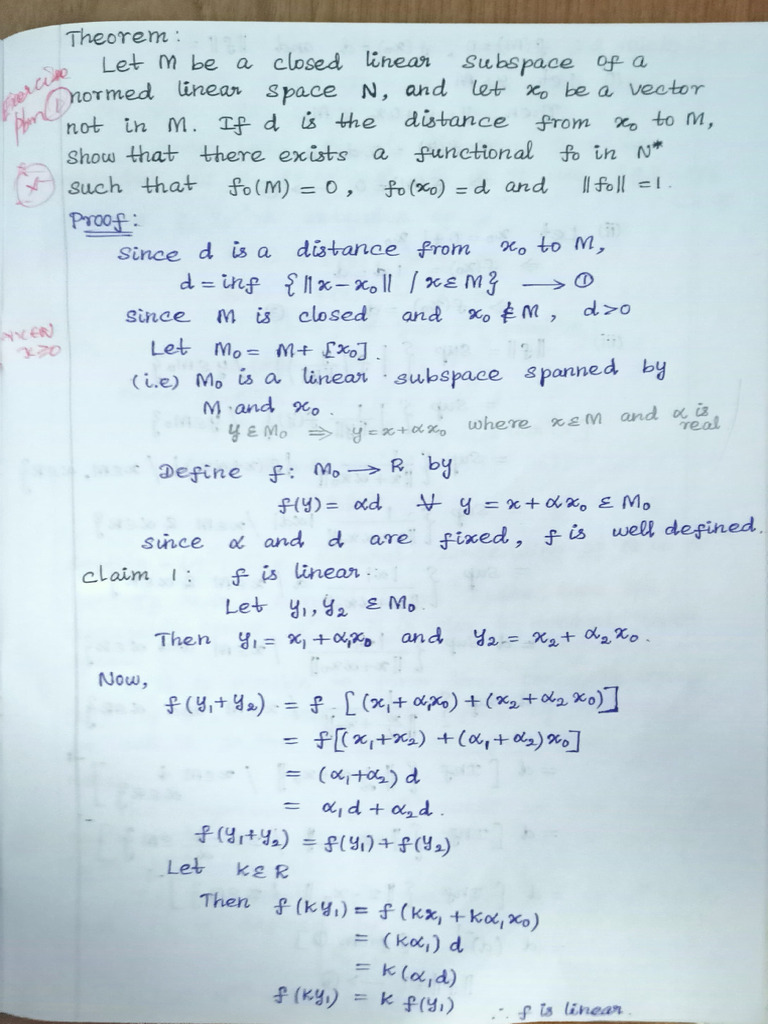 Theorem:
Let M be a closed linear subspace of a
normed linear space N, and let x₀ be a vector
not in M. If d is the distance from x₀ to M,
show that there exists a functional f₀ in N*
such that f₀(M) = 0, f₀(x₀) = d and ‖f₀‖ = 1.
Exercise
pbm ①
Proof:
Since d is a distance from x₀ to M,
d = inf {‖x - x₀‖ / x ε M} → ①
since M is closed and x₀ ∉ M, d>0
x≥0
Let M₀ = M + [x₀].
(i.e) M₀ is a linear subspace spanned by
M and x₀.
y ε M₀ ⇒ y = x + αx₀ where x ε M and α is
real
Define f: M₀ → R by
f(y) = αd ∀ y = x + αx₀ ε M₀
since α and d are fixed, f is well defined.
claim 1: f is linear.
Let y₁, y₂ ε M₀.
Then y₁ = x₁ + α₁x₀ and y₂ = x₂ + α₂x₀.
Now,
f(y₁+y₂) = f [(x₁+α₁x₀) + (x₂+α₂x₀)]
= f[(x₁+x₂) + (α₁+α₂)x₀]
= (α₁+α₂) d
= α₁d + α₂d.
f(y₁+y₂) = f(y₁) + f(y₂)
Let k ε R
Then f(ky₁) = f(kx₁ + kα₁x₀)
= (kα₁) d
= k(α₁d)
f(ky₁) = k f(y₁) ∴ f is linear.